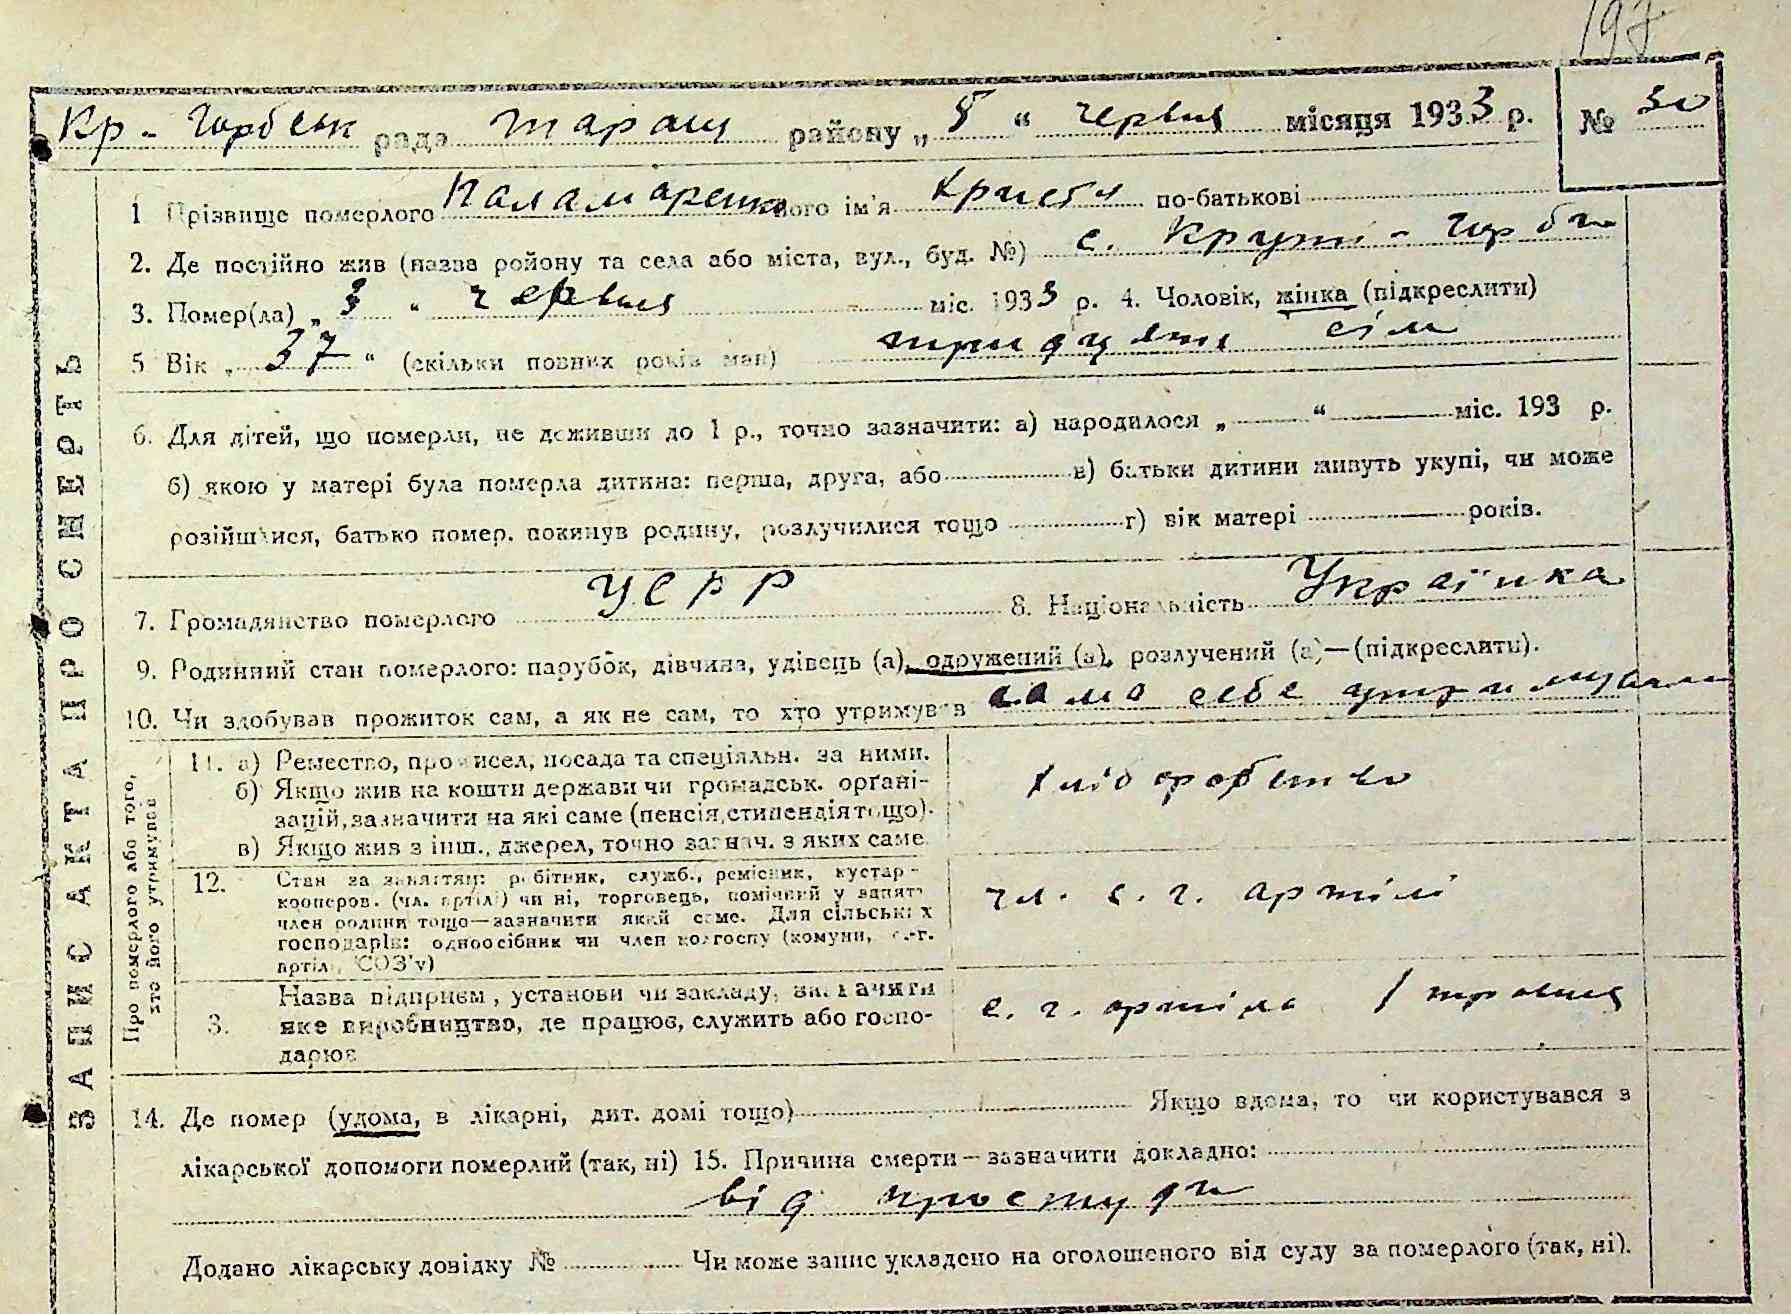 197
Кр - Горбськ рада Таращ району „ 5 “ червня місяця 1933 р. № 30
ЗАПИС АКТА ПРО СМЕРТЬ
1 Прізвище померлого Паламаренко його ім'я Христя по-батькові
2. Де постійно жив (назва ройону та села або міста, вул., буд. №) с. Круті - Горби
3. Помер(ла) „ 3 “ червня міс. 1933 р. 4. Чоловік, жінка (підкреслити)
5 Вік „ 37 “ (скільки повних років мав) тридцять сім
6. Для дітей, що померли, не доживши до 1 р., точно зазначити: а) народилося „ “ міс. 193 р.
б) якою у матері була померла дитина: перша, друга, або в) батьки дитини живуть укупі, чи може
розійшлися, батько помер. покинув родину, розлучилися тощо г) вік матері років.
7. Громадянство померлого УСРР 8. Національність Українка
9. Родинний стан померлого: парубок, дівчина, удівець (а), одружений (а), розлучений (а)—(підкреслити).
10. Чи здобував прожиток сам, а як не сам, то хто утримував сама себе утримувала
Про померлого або того, хто його утримував
11. а) Ремество, промисел, посада та спеціяльн. за ними.
б) Якщо жив на кошти держави чи громадськ. орґані-
зацій, зазначити на які саме (пенсія, стипендія тощо).
в) Якщо жив з інш., джерел, точно зазнач. з яких саме.
хліборобство
12. Стан за заняттям: робітник, служб., ремісник, кустар -
кооперов. (чл. артілі) чи ні, торговець, помічний у занят.
член родини тощо—зазначити який саме. Для сільських
господарів: одноосібник чи член колгоспу (комуни, с.-г.
артілі, СОЗ'у)
чл. с. г. артілі
3. Назва підприєм, установи чи закладу, зазначити
яке виробництво, де працює, служить або госпо-
дарює
с. г. артіль 1 травня
14. Де помер (удома, в лікарні, дит. домі тощо) Якщо вдома, то чи користувався з
лікарської допомоги померлий (так, ні) 15. Причина смерти — зазначити докладно:
від простуди
Додано лікарську довідку № Чи може запис укладено на оголошеного від суду за померлого (так, ні).